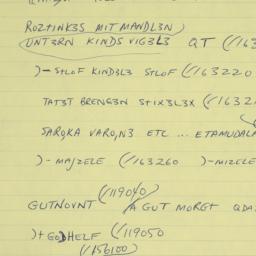 ROZTINK3S MIT MANDL3N
UNT3RN KINDS VIG3L3 QT (/163
)-STLOF KIND3L3 STLOF (/163220
TAT3T BRENG3N STIX3L3X (/1632
SAROKA VARON3 ETC ... ETAMUDAL
)-MAJZELE (/163260 )-MIZELE
(/119040)
GUTNOVNT /A GUT MORGT QDA
)+GODHELF (/119050
(/156100)